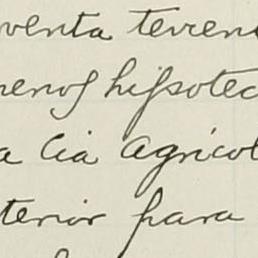 venta terren
renos hipotec
a Cia Agricol
terior para